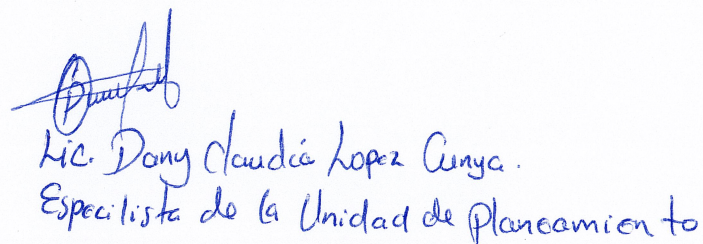 Lic. Dany Claudia Lopez Cunya.
Especilista de la Unidad de planeamiento